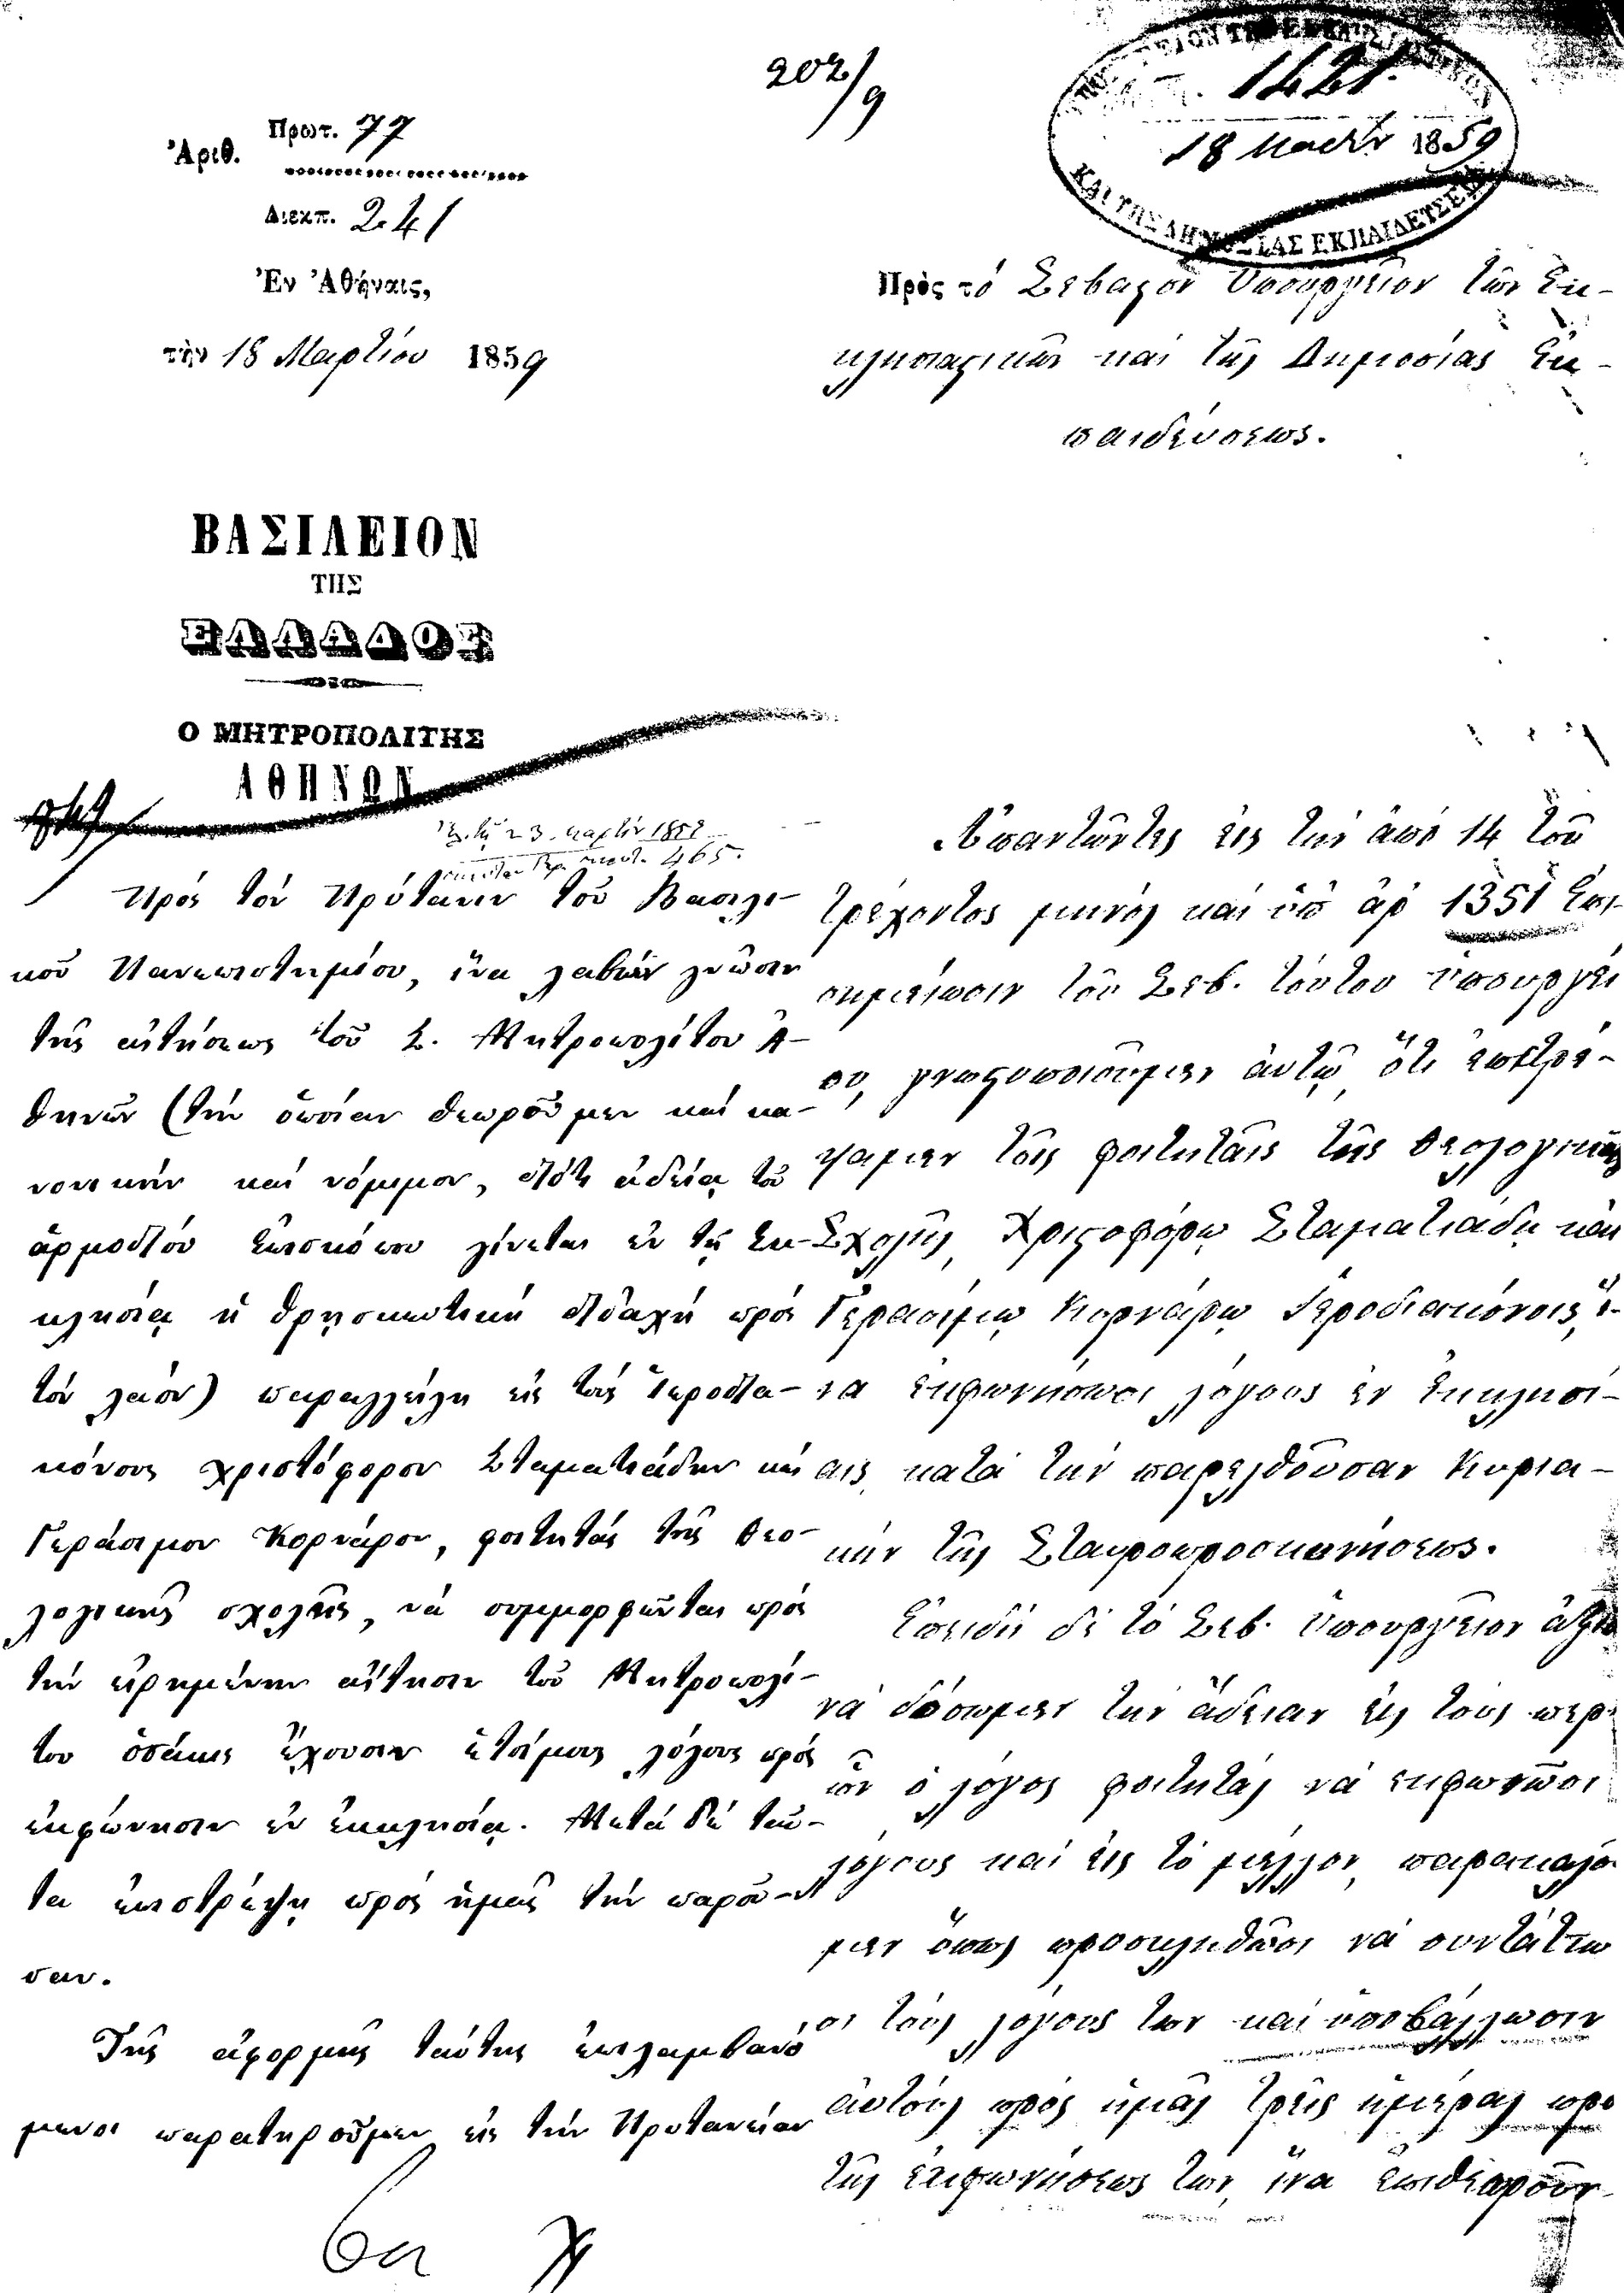 202/9
ΥΠΟΥΡΓΕΙΟΝ ΤΩΝ ΕΚΚΛΗΣΙΑΣΤΙΚΩΝ
1421.
18 Μαρτίου 1859
ΚΑΙ ΤΗΣ ΔΗΜΟΣΙΑΣ ΕΚΠΑΙΔΕΥΣΕΩΣ
Ἀριθ. Πρωτ. 77
Διεκπ. 241
Ἐν Ἀθήναις,
τὴν 18 Μαρτίου 1859
Πρὸς τὸ Σεβαστὸν Ὑπουργεῖον τῶν Ἐκ-
κλησιαστικῶν καὶ τῆς Δημοσίας Ἐκ-
παιδεύσεως.
ΒΑΣΙΛΕΙΟΝ
ΤΗΣ
ΕΛΛΑΔΟΣ
Ο ΜΗΤΡΟΠΟΛΙΤΗΣ
ΑΘΗΝΩΝ
τῇ 23 Μαρτίου 1859
πρωτ. 465.
Πρὸς τὸν Πρύτανιν τοῦ Βασιλι-
κοῦ Πανεπιστημίου, ἵνα λαβὼν γνῶσιν
τῆς αἰτήσεως τοῦ Σ. Μητροπολίτου Ἀ-
θηνῶν (τὴν ὁποίαν θεωροῦμεν καὶ κα-
νονικὴν καὶ νόμιμον, διότι ἀδείᾳ τοῦ
ἁρμοδίου Ἐπισκόπου γίνεται ἐν τῇ Ἐκ-
κλησίᾳ ἡ θρησκευτικὴ διδαχὴ πρὸς
τὸν λαόν) παραγγείλῃ εἰς τοὺς Ἱεροδια-
κόνους Χριστόφορον Σταματιάδην καὶ
Γεράσιμον Κορνάρον, φοιτητὰς τῆς θεο-
λογικῆς σχολῆς, νὰ συμμορφῶνται πρὸς
τὴν εἰρημένην αἴτησιν τοῦ Μητροπολί-
του ὁσάκις ἔχουσιν ἑτοίμους λόγους πρὸς
ἐκφώνησιν ἐν ἐκκλησίᾳ. Μετὰ δὲ ταῦ-
τα ἐπιστρέψῃ πρὸς ἡμᾶς τὴν παροῦ-
σαν.
Τῆς ἀφορμῆς ταύτης ἐπιλαμβανό
μενοι παρατηροῦμεν εἰς τὴν Πρυτανείαν
Ἀπαντῶντες εἰς τὴν ἀπὸ 14 τοῦ
τρέχοντος μηνὸς καὶ ὑπ' ἀρ 1351 Ἐπι-
σημείωσιν τοῦ Σεβ. τούτου Ὑπουργεί
ου, γνωστοποιοῦμεν αὐτῷ ὅτι ἐπετρέ-
ψαμεν τοῖς φοιτηταῖς τῆς θεολογικῆς
Σχολῆς, Χριστοφόρῳ Σταματιάδῃ καὶ
Γερασίμῳ Κορνάρῳ Ἱεροδιακόνοις, ἵ-
να ἐκφωνήσωσι λόγους ἐν Ἐκκλησί-
αις κατὰ τὴν παρελθοῦσαν Κυρια-
κὴν τῆς Σταυροπροσκυνήσεως.
Ἐπειδὴ δὲ τὸ Σεβ. Ὑπουργεῖον ἀξιοῖ
νὰ δώσωμεν τὴν ἄδειαν εἰς τοὺς περὶ
ὧν ὁ λόγος φοιτητὰς νὰ ἐκφωνῶσι
λόγους καὶ εἰς τὸ μέλλον, παρακαλοῦ
μεν ὅπως προσκληθῶσι νὰ συντάττω
σι τοὺς λόγους των καὶ ὑποβάλλωσιν
αὐτοὺς πρὸς ἡμᾶς τρεῖς ἡμέρας προ
τῆς ἐκφωνήσεώς των, ἵνα ἐπιθεωροῦν-